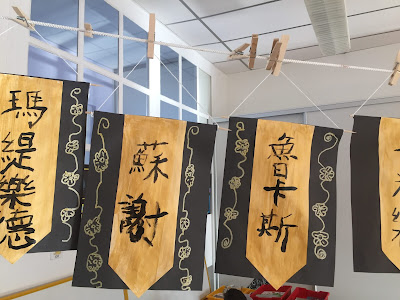 瑪緹樂德
蘇謝
魯卡斯